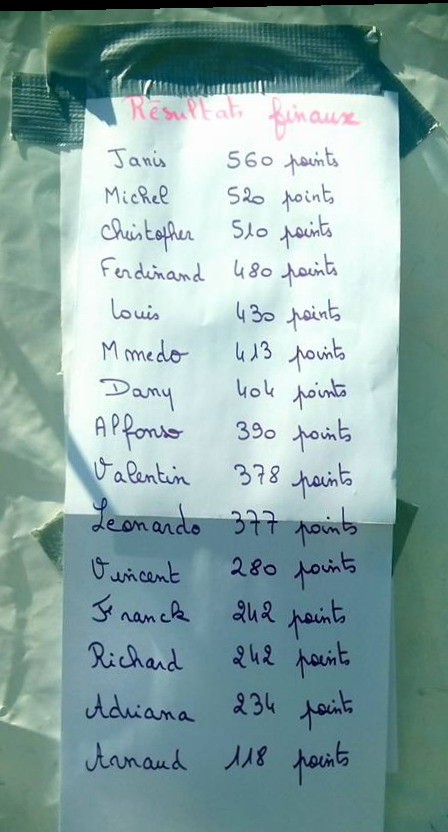 Résultats finaux
Janis 560 points
Michel 520 points
Christopher 510 points
Ferdinand 480 points
Louis 430 points
Mmedo 413 points
Dany 404 points
Alfonso 390 points
Valentin 378 points
Leonardo 377 points
Vincent 280 points
Franck 242 points
Richard 242 points
Adriana 234 points
Arnaud 118 points